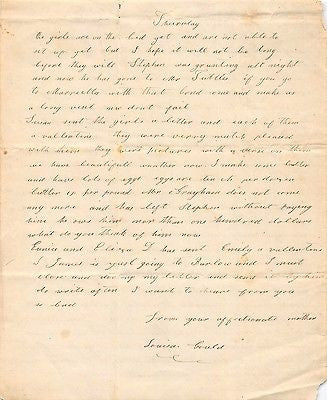 Thursday
the girls are on the bed yet and are not able to
set up yet but I hope it will not be long
before they will Stephen was grunting all night
and now he has gone to Mr Tuttles if you go
to Marvells with that bond come and make us
a long visit now dont fail
Susan sent the girls a letter and each of them
a vallentine they were verry much pleased
with them they were pictures with a verse on them
we have beautifull weather now I make some butter
and have lots of eggs eggs are ten ct per dozen
butter is per pound Mr Graham does not come
any more and has left Stephen without paying
him he ows him mor than one hundred dollars
what do you think of him now
and Eliza I has sent Emily a vallentine
James is just going to Barlow and I must
close and my letter and send it by him
do write often I want to heare from you
so bad
from your affectionate mother
Louisa Gould